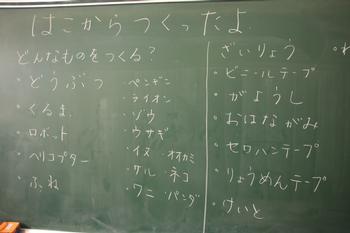 はこからつくったよ
どんなものをつくる?
・どうぶつ
・くるま
・ロボット
・ヘリコプター
・ふね
・ペンギン
・ライオン
・ゾウ
・ウサギ
・イヌ ・オオカミ
・サル ・ネコ
・ワニ ・パンダ
ざいりょう
・ビニールテープ
・がようし
・おはながみ
・セロハンテープ
・りょうめんテープ
・けいと